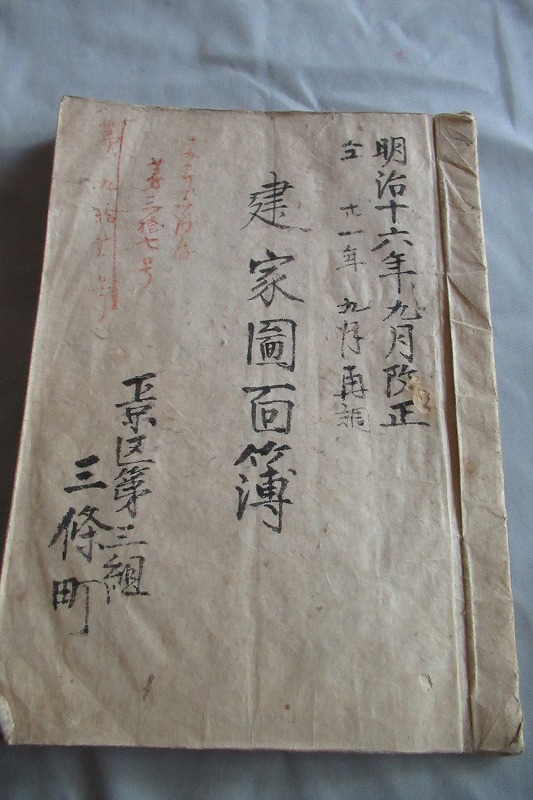 明治十六年九月改正
仝 廿一年 九月再調
建家圖面簿
下京区第三組
三條町
第三拾七号